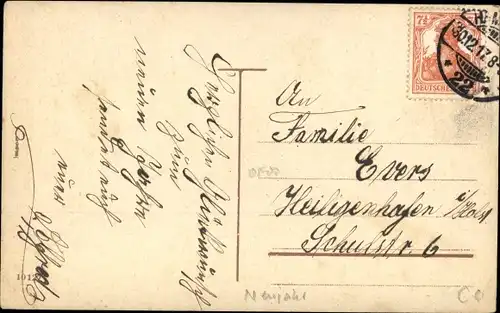 Herzlichen Glückwunsch
zum
neuen Jahre
sendet auch
An
Familie
Evers
Heiligenhafen i/Holst.
Schulstr. 6
7½
DEUTSCHES
30.12.17. 8-
* 22 *
Neujahr